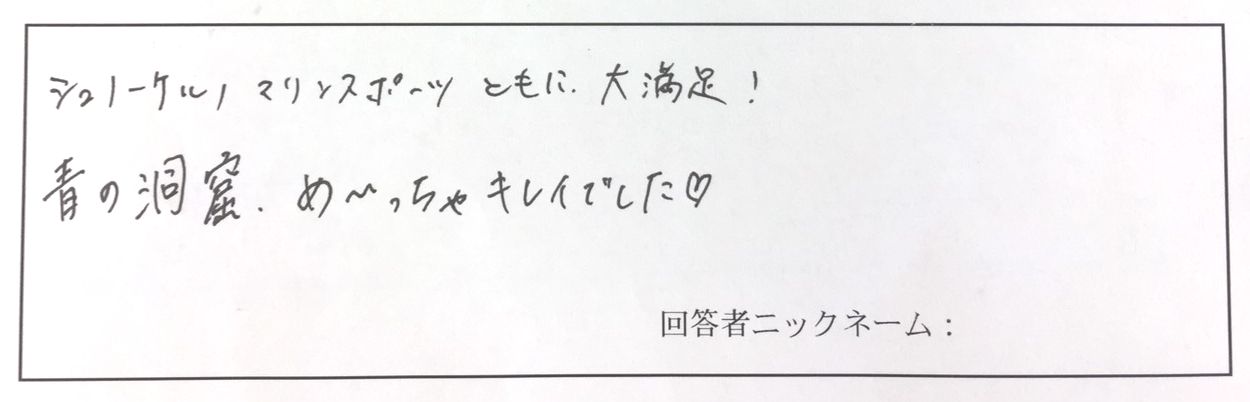 シュノーケル、マリンスポーツ ともに、大満足！
青の洞窟、め〜っちゃキレイでした♡
回答者ニックネーム：